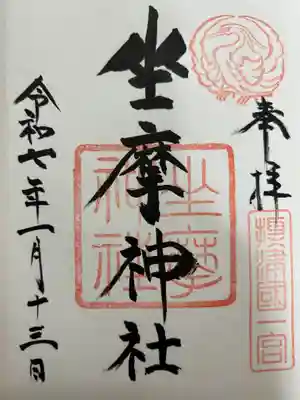 奉拝
攝津國一宮
坐摩神社
坐摩神社
令和七年一月十三日